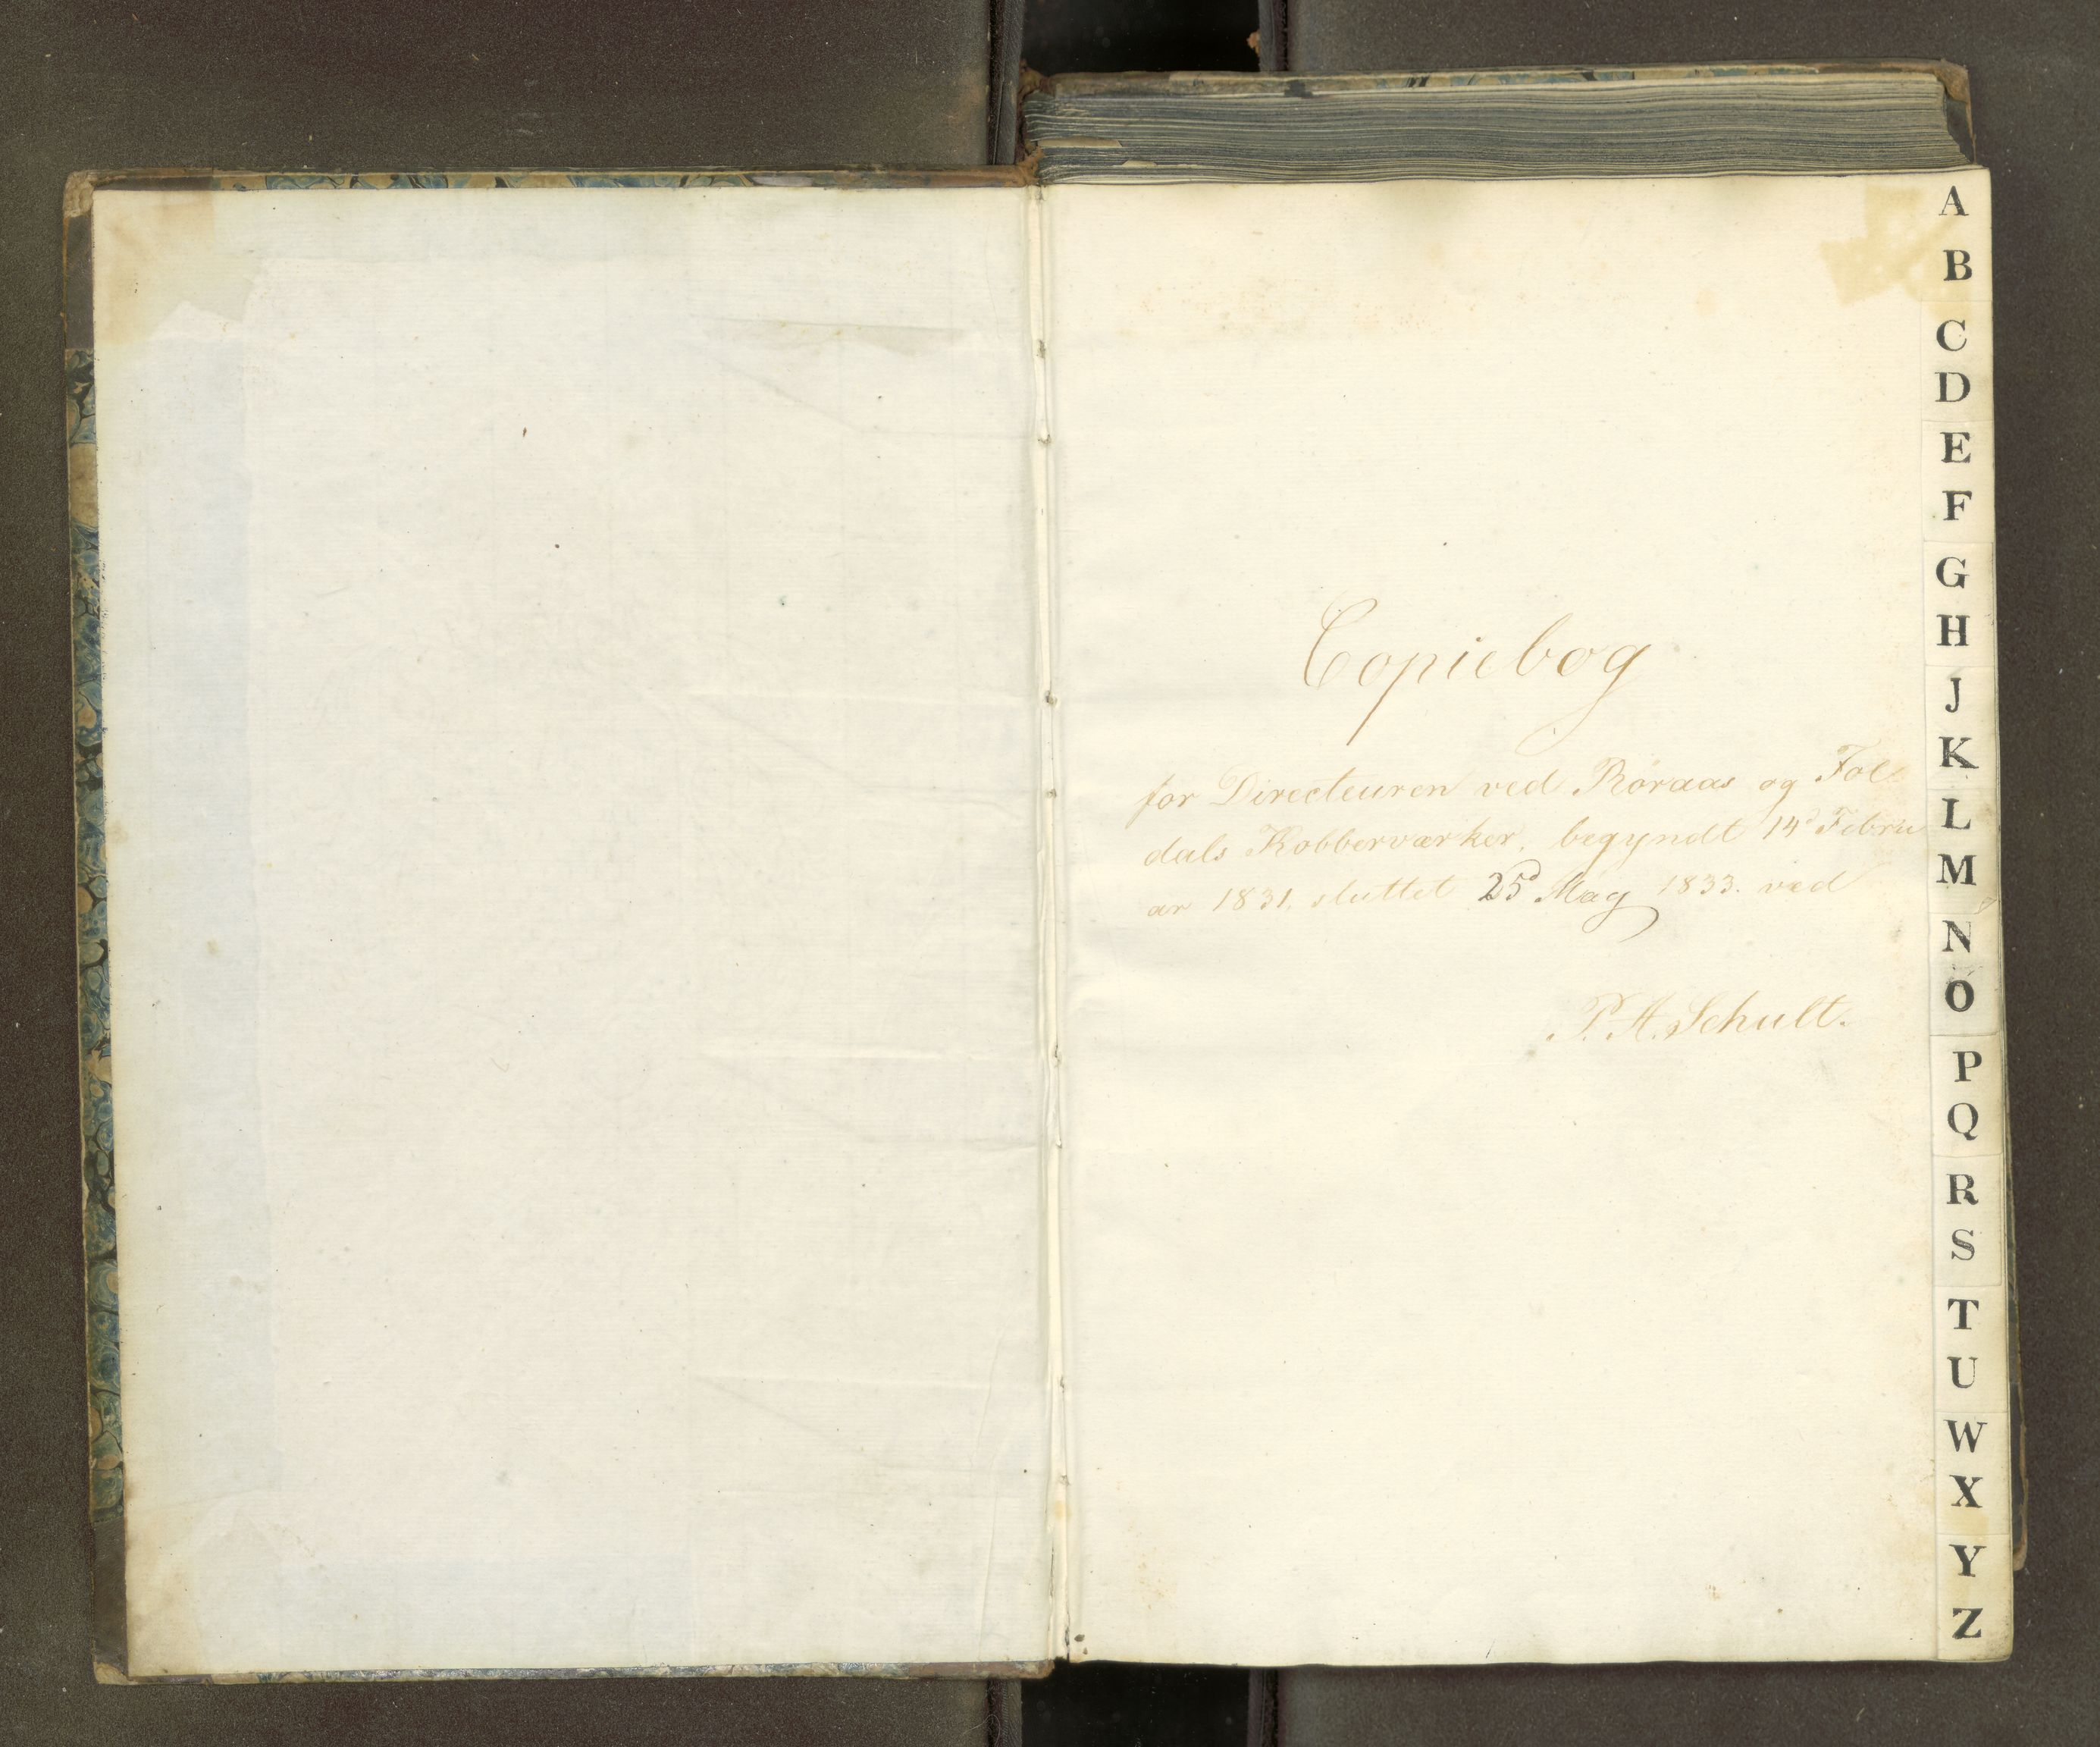 Copiebog
for Directeuren ved Røraas og Fol
dals Kobberværker, begyndt 14d Febru
ar 1831, sluttet 25d May 1833. ved
P. A. Schult.
A
B
C
D
E
F
G
H
J
K
L
M
N
O
P
Q
R
S
T
U
W
X
Y
Z